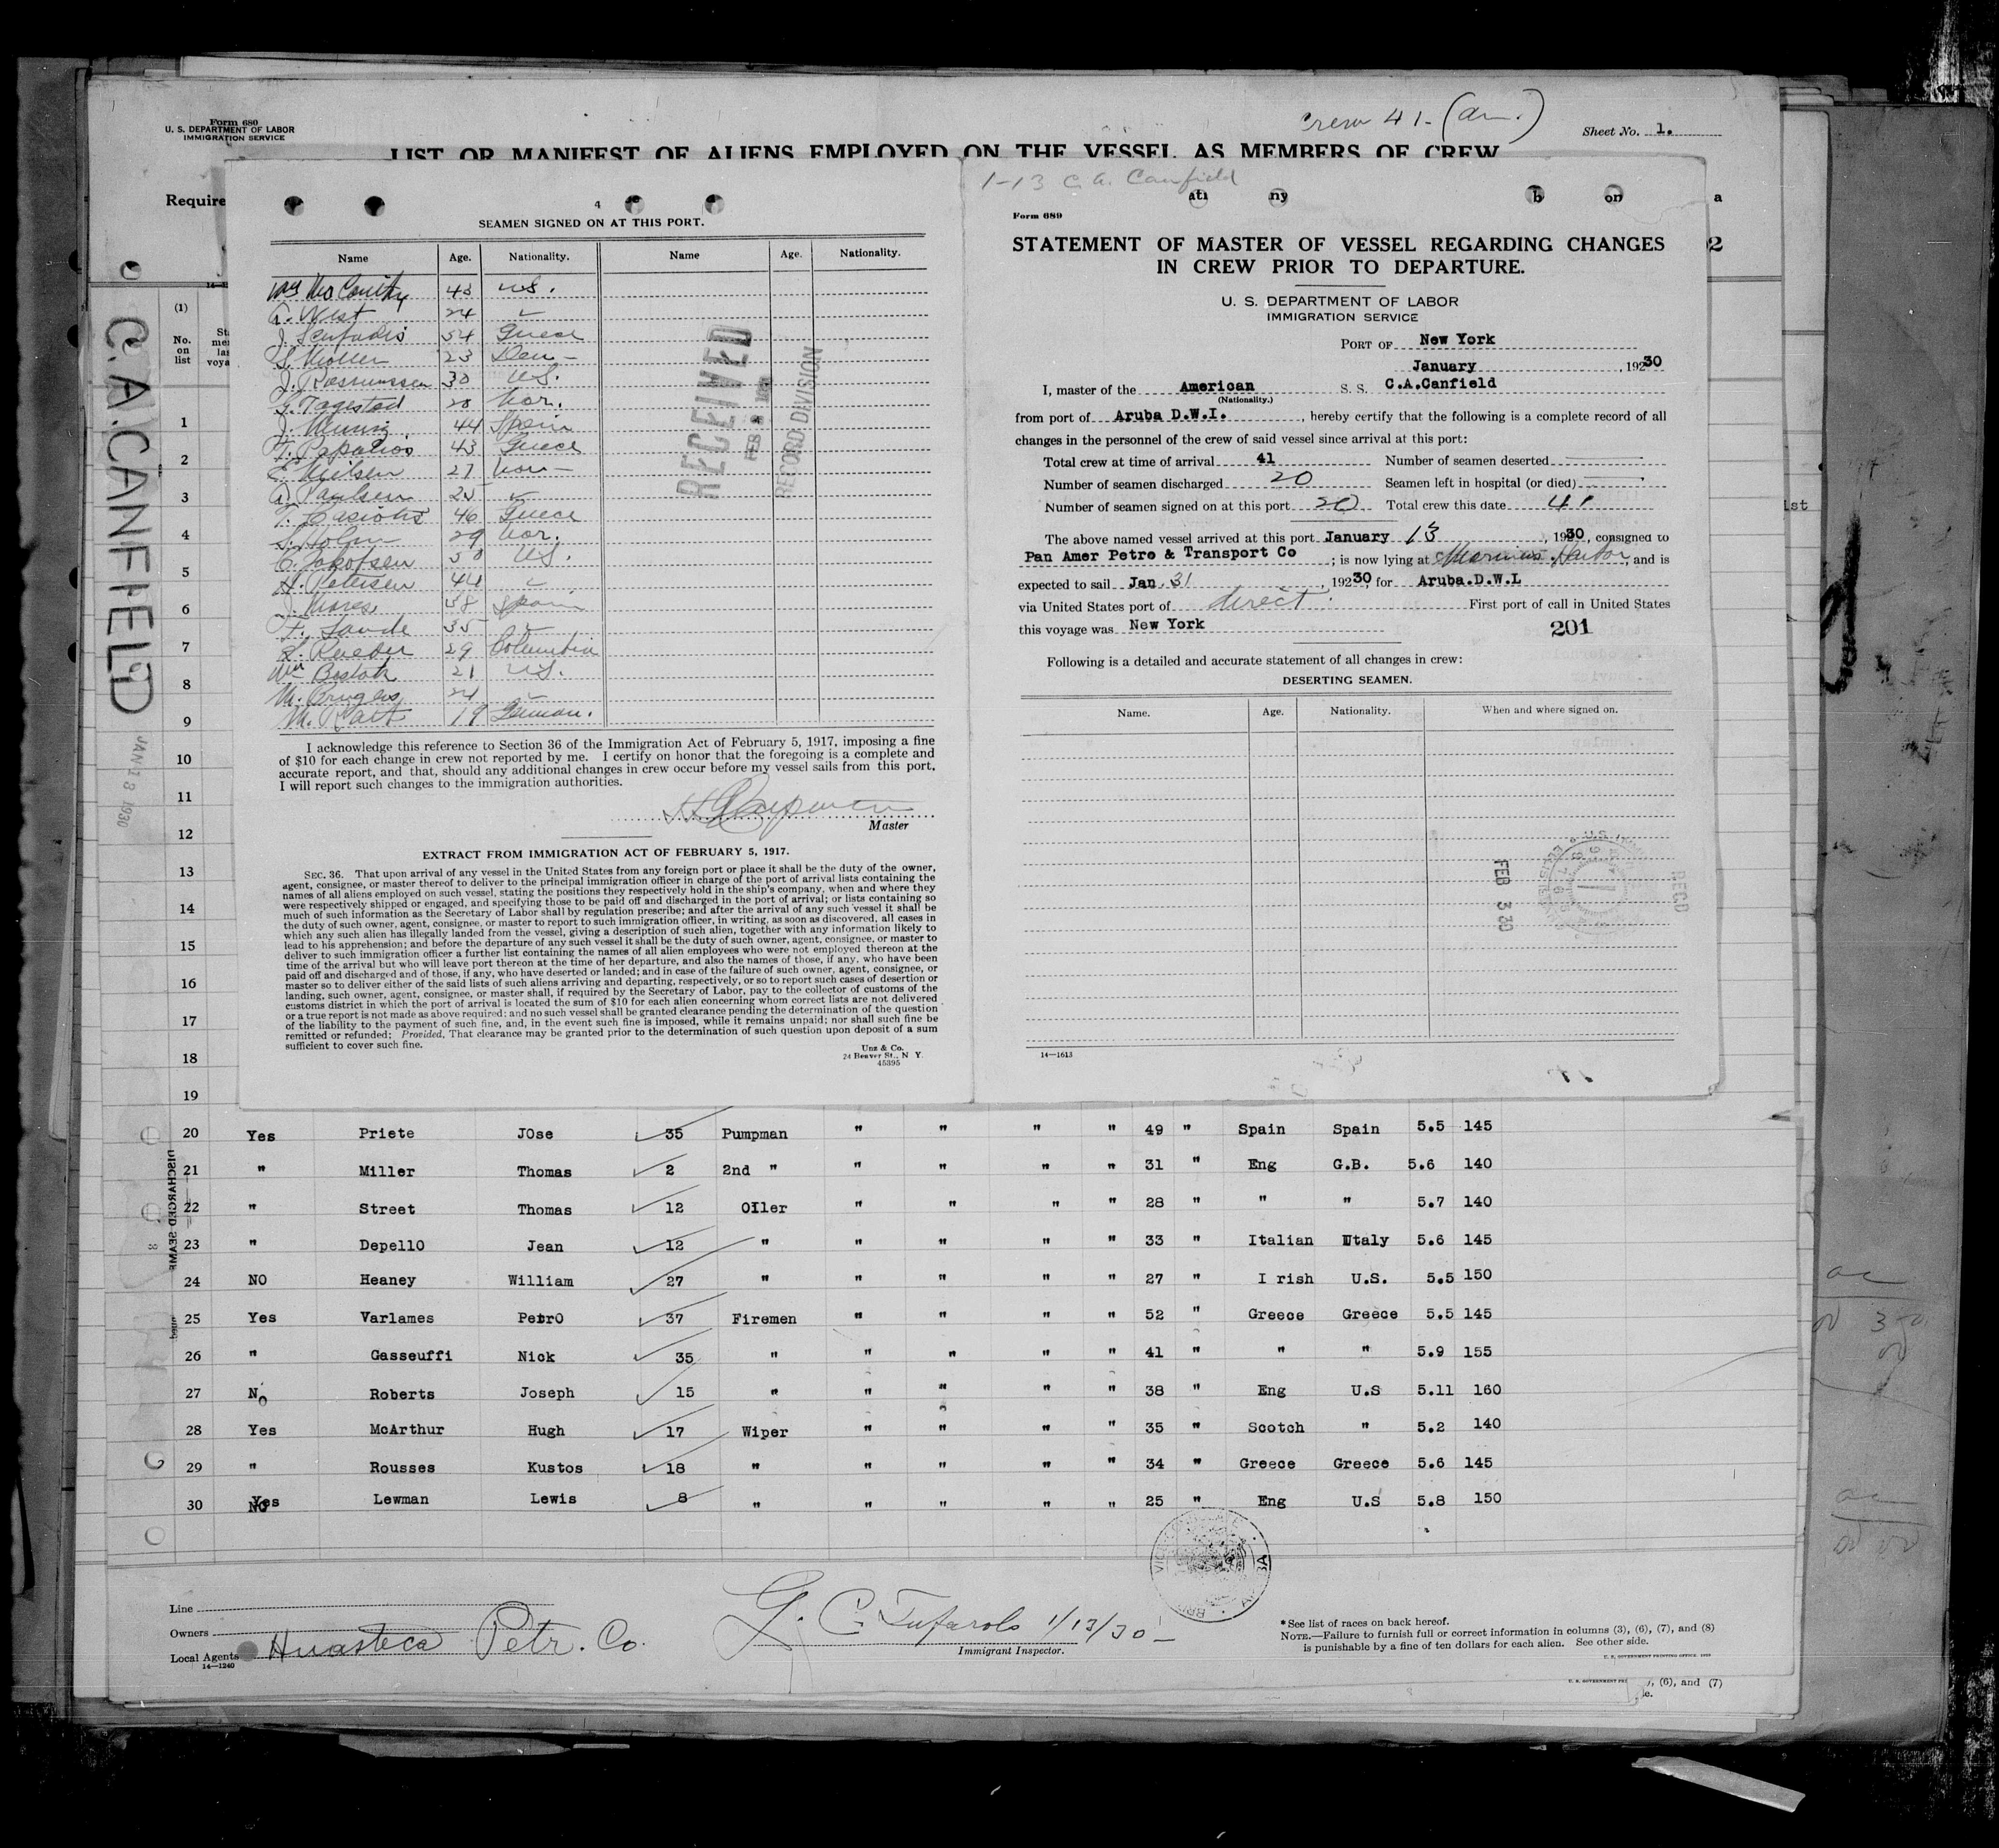 Form 680
U. S. DEPARTMENT OF LABOR
IMMIGRATION SERVICE
Crew 41- (am.)
Sheet No. 1.
LIST OR MANIFEST OF ALIENS EMPLOYED ON THE VESSEL AS MEMBERS OF CREW
Require
C.A.CANFIELD
JAN 13 1930
(1)
No.
on
list
1
2
3
4
5
6
7
8
9
10
11
12
13
14
15
16
17
18
19
4
SEAMEN SIGNED ON AT THIS PORT.
Name Age. Nationality. Name Age. Nationality.
43 U.S.
A. West 24 "
54 Greece
S. Moller 23 Den -
J. Rasmussen 30 U.S.
T. Tagested 28 Nor.
44 Spain
T. Papalios 43 Greece
E. Neilsen 27 Nor -
A. Paulsen 25 "
46 Greece
S. Holm 29 Nor.
C. Jakobsen 50 U.S.
H. Petersen 44 "
58 Spain
35 "
29 Columbia
Wm Bostok 21 U.S.
24 "
19 German.
RECEIVED
FEB
RECORD DIVISION
I acknowledge this reference to Section 36 of the Immigration Act of February 5, 1917, imposing a fine
of $10 for each change in crew not reported by me. I certify on honor that the foregoing is a complete and
accurate report, and that, should any additional changes in crew occur before my vessel sails from this port,
I will report such changes to the immigration authorities.
Master
EXTRACT FROM IMMIGRATION ACT OF FEBRUARY 5, 1917.
SEC. 36. That upon arrival of any vessel in the United States from any foreign port or place it shall be the duty of the owner,
agent, consignee, or master thereof to deliver to the principal immigration officer in charge of the port of arrival lists containing the
names of all aliens employed on such vessel, stating the positions they respectively hold in the ship's company, when and where they
were respectively shipped or engaged, and specifying those to be paid off and discharged in the port of arrival; or lists containing so
much of such information as the Secretary of Labor shall by regulation prescribe; and after the arrival of any such vessel it shall be
the duty of such owner, agent, consignee, or master to report to such immigration officer, in writing, as soon as discovered, all cases in
which any such alien has illegally landed from the vessel, giving a description of such alien, together with any information likely to
lead to his apprehension; and before the departure of any such vessel it shall be the duty of such owner, agent, consignee, or master to
deliver to such immigration officer a further list containing the names of all alien employees who were not employed thereon at the
time of the arrival but who will leave port thereon at the time of her departure, and also the names of those, if any, who have been
paid off and discharged and of those, if any, who have deserted or landed; and in case of the failure of such owner, agent, consignee, or
master so to deliver either of the said lists of such aliens arriving and departing, respectively, or so to report such cases of desertion or
landing, such owner, agent, consignee, or master shall, if required by the Secretary of Labor, pay to the collector of customs of the
customs district in which the port of arrival is located the sum of $10 for each alien concerning whom correct lists are not delivered
or a true report is not made as above required; and no such vessel shall be granted clearance pending the determination of the question
of the liability to the payment of such fine, and, in the event such fine is imposed, while it remains unpaid; nor shall such fine be
remitted or refunded: Provided, That clearance may be granted prior to the determination of such question upon deposit of a sum
sufficient to cover such fine.
Unz & Co.
24 Beaver St., N Y.
45395
1-13 C.A. Canfield
Form 689
STATEMENT OF MASTER OF VESSEL REGARDING CHANGES
IN CREW PRIOR TO DEPARTURE.
U. S. DEPARTMENT OF LABOR
IMMIGRATION SERVICE
PORT OF New York
January , 19230
I, master of the American S. S. C.A.Canfield
(Nationality.)
from port of Aruba D.W.I. , hereby certify that the following is a complete record of all
changes in the personnel of the crew of said vessel since arrival at this port:
Total crew at time of arrival 41 Number of seamen deserted
Number of seamen discharged 20 Seamen left in hospital (or died)
Number of seamen signed on at this port 20 Total crew this date 41
The above named vessel arrived at this port January 13 , 1930, consigned to
Pan Amer Petro & Transport Co ; is now lying at Mariners Harbor, and is
expected to sail Jan. 31 , 19230, for Aruba.D.W.I
via United States port of direct. First port of call in United States
this voyage was New York
201
Following is a detailed and accurate statement of all changes in crew:
DESERTING SEAMEN.
Name. Age. Nationality. When and where signed on.
FEB 3 30
RECD
14—1613
20 Yes Priete JOse 35 Pumpman " " " " 49 " Spain Spain 5.5 145
21 " Miller Thomas 2 2nd " " " " " 31 " Eng G.B. 5.6 140
22 " Street Thomas 12 OIler " " " " 28 " " " 5.7 140
23 " DepellO Jean 12 " " " " " 33 " Italian Utaly 5.6 145
24 NO Heaney William 27 " " " " " 27 " I rish U.S. 5.5 150
25 Yes Varlames PetrO 37 Firemen " " " " 52 " Greece Greece 5.5 145
26 " Gasseuffi Nick 35 " " " " " 41 " " " 5.9 155
27 No Roberts Joseph 15 " " " " " 38 " Eng U.S 5.11 160
28 Yes McArthur Hugh 17 Wiper " " " " 35 " Scotch " 5.2 140
29 " Rousses Kustos 18 " " " " " 34 " Greece Greece 5.6 145
30 Yes NO Lewman Lewis 8 " " " " " 25 " Eng U.S 5.8 150
DISCHARGED SEAME
Line
Owners
Local Agents Huasteca Petr. Co.
14—1240
G. C. Tufarolo 1/13/30-
Immigrant Inspector.
* See list of races on back hereof.
NOTE.—Failure to furnish full or correct information in columns (3), (6), (7), and (8)
is punishable by a fine of ten dollars for each alien. See other side.
U. S. GOVERNMENT PRINTING OFFICE: 1929
, (6), and (7)